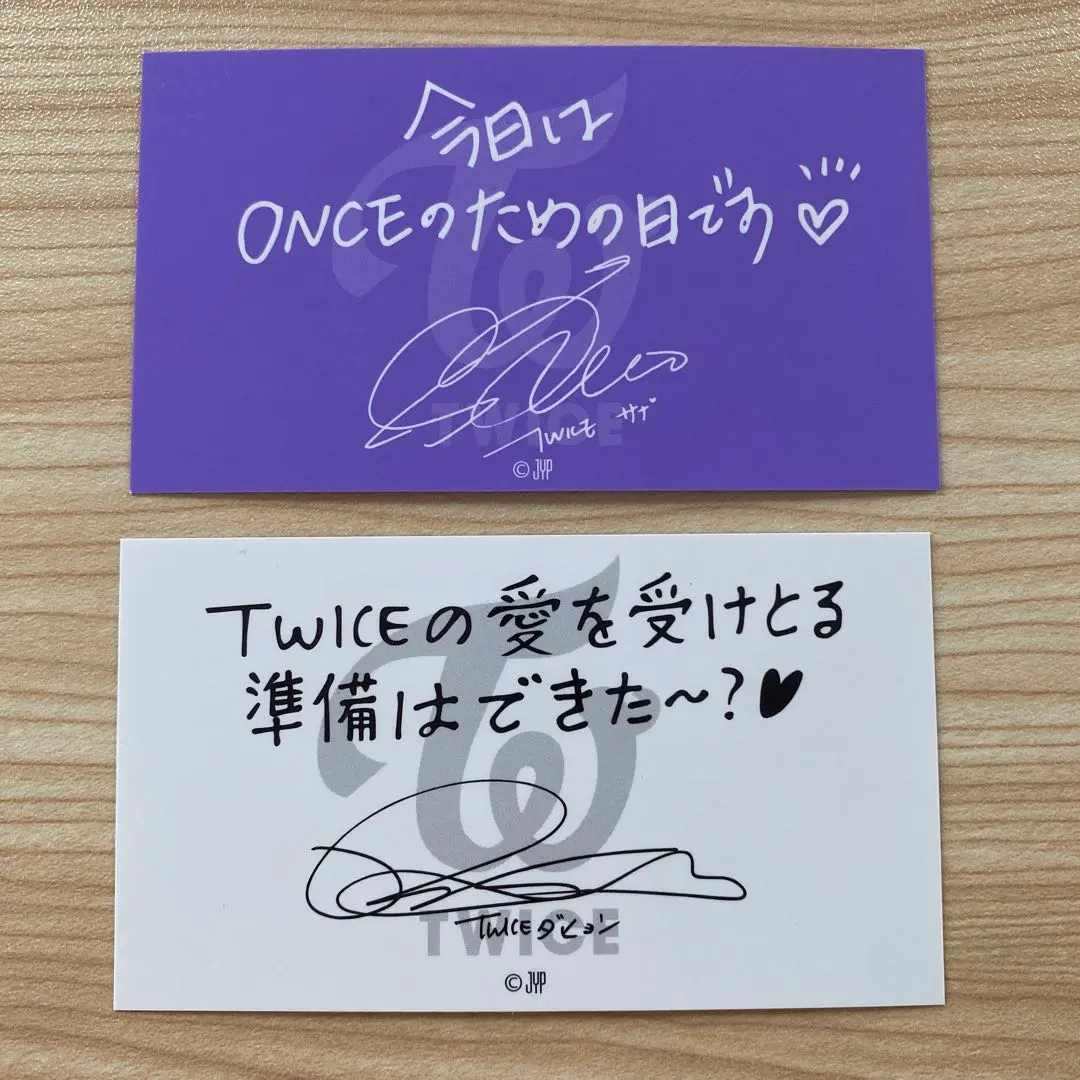 今日は
ONCEのための日です♡
TWICE
TWICE サナ
© JYP
TWICEの愛を受けとる
準備はできた〜?♥
TWICE
TWICEダヒョン
© JYP